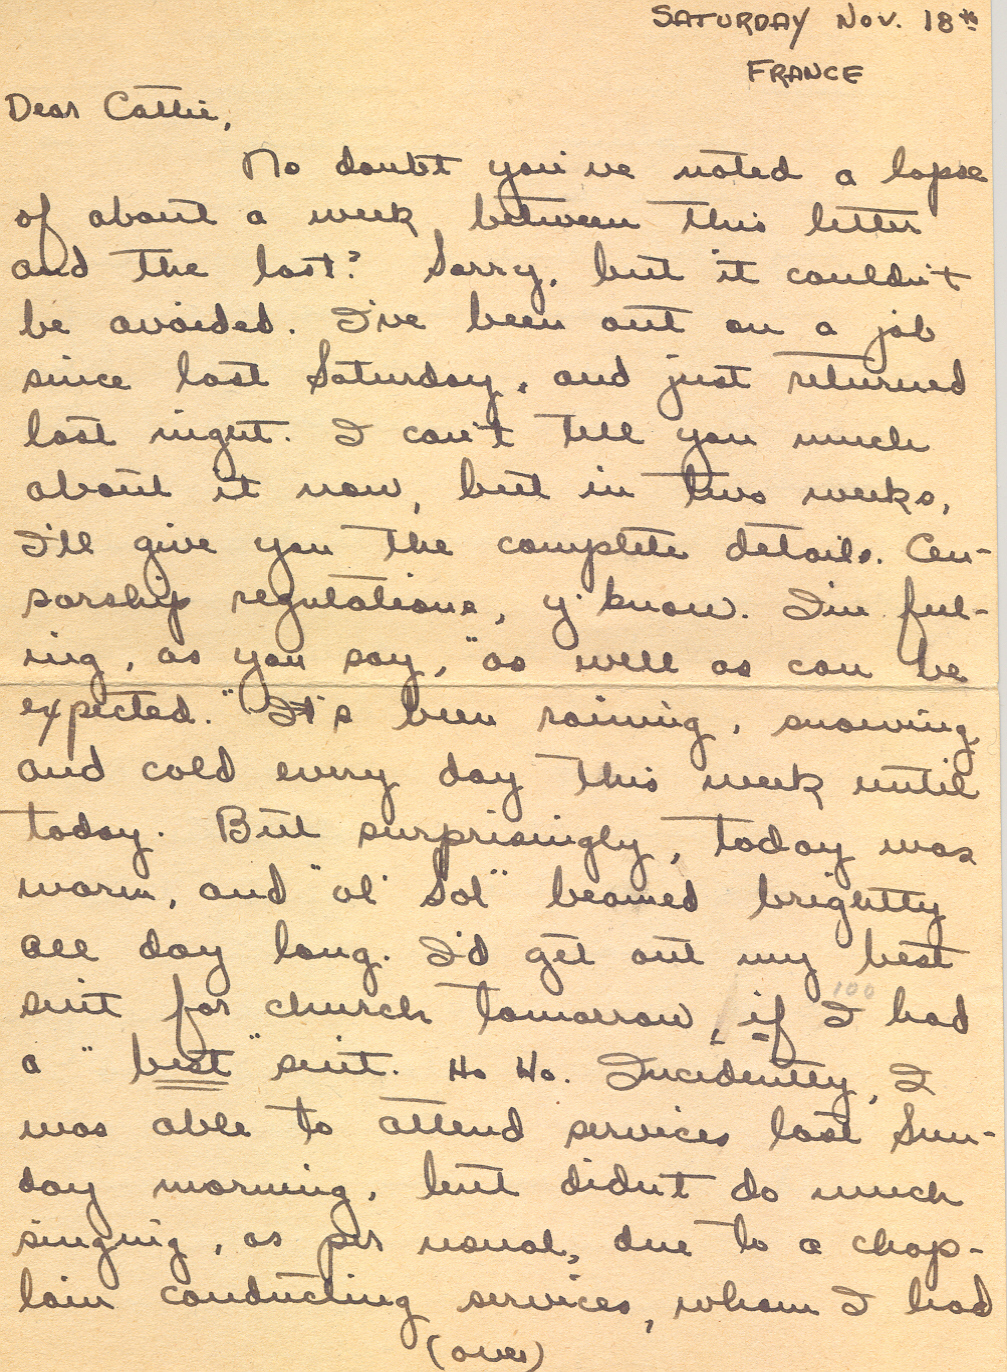 SATURDAY NOV. 18th
FRANCE
Dear Cattie,
No doubt you've noted a lapse
of about a week between this letter
and the last? Sorry, but it couldn't
be avoided. I've been out on a job
since last Saturday, and just returned
last night. I can't tell you much
about it now, but in two weeks,
I'll give you the complete details. Cen-
sorship regulations, y'know. I'm feel-
ing, as you say, "as well as can be
expected." It's been raining, snowing
and cold every day this week until
today. But surprisingly, today was
warm, and "ol' Sol" beamed brightly
all day long. I'd get out my best
suit for church tomorrow, if I had
100
a "best" suit. Ho Ho. Incidently, I
was able to attend services last Sun-
day morning, but didn't do much
singing, as per usual, due to a chap-
lain conducting services, whom I had
(over)